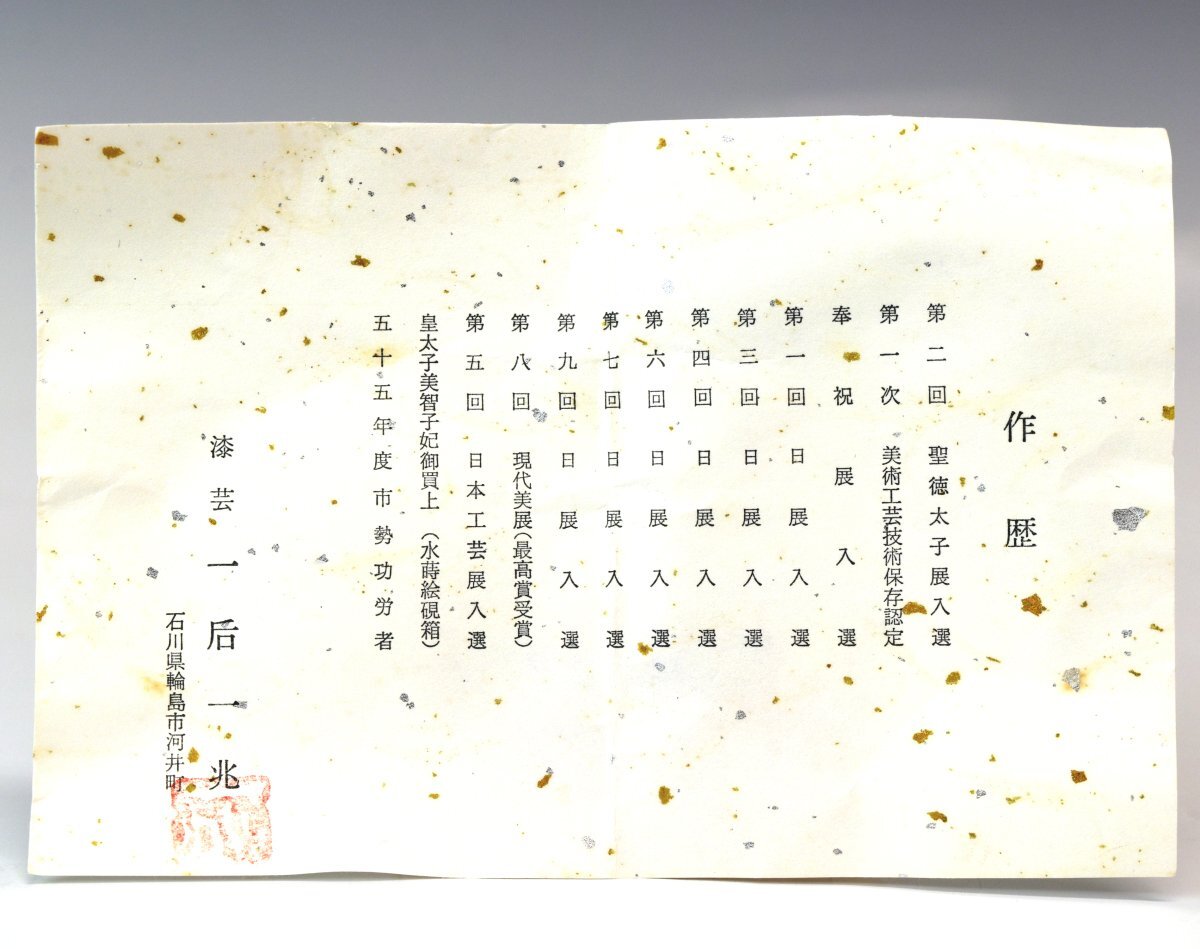 作歴
第二回 聖徳太子展入選
第一次 美術工芸技術保存認定
奉祝展入選
第一回 日展入選
第三回 日展入選
第四回 日展入選
第六回 日展入選
第七回 日展入選
第九回 日展入選
第八回 現代美展(最高賞受賞)
第五回 日本工芸展入選
皇太子美智子妃御買上 (水蒔絵硯箱)
五十五年度市勢功労者
漆芸 一后一兆
石川県輪島市河井町